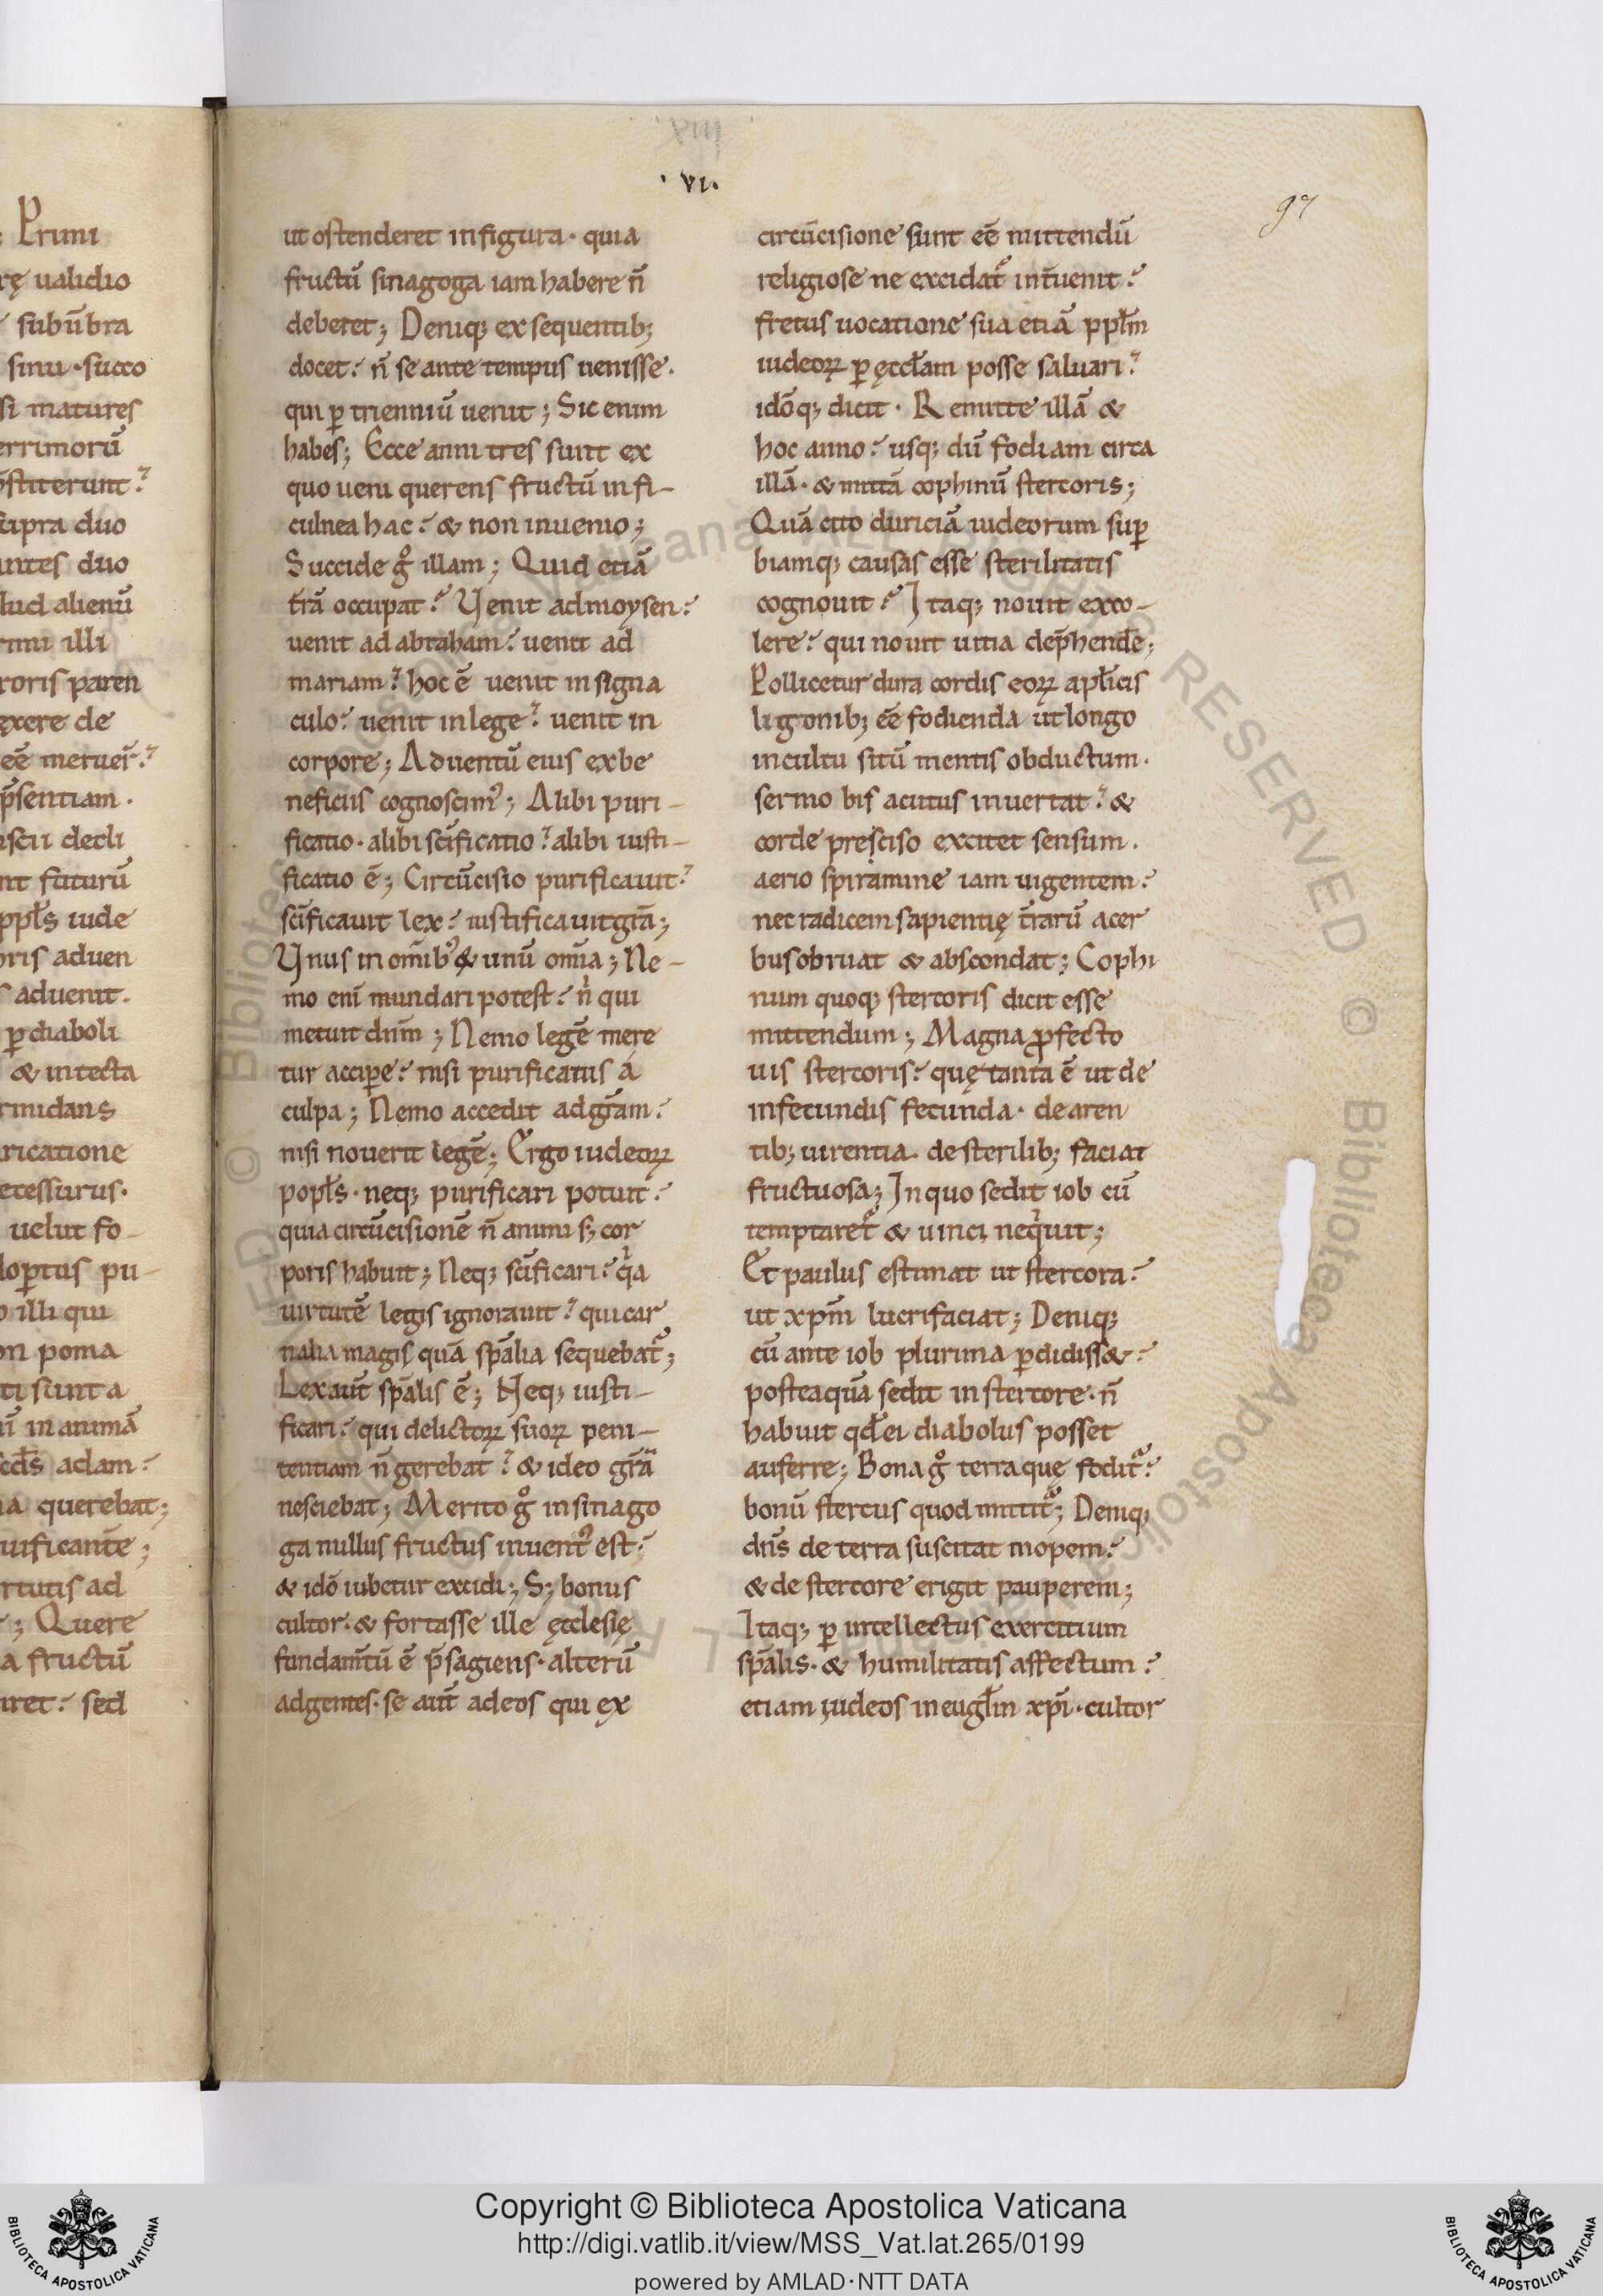 : Primi
rę ualidio
subūbra
sinu · succo
si matures
errimorū
ōstiterunt?
supra duo
antes duo
lud alienū
rimi illi
roris paren
ęxere de
eē merueř?
p̄sentiam.
iscii decli
nt futurū
ppl̄s iude
oris aduen
s aduenit.
ꝑ diaboli
& intecta
rmidans
ricatione
etessurus.
uelut fo-
loptus pu-
o illi qui
on poma
ti sunt a
ū in animā
adam?
a querebat;
uificante;
rtutis ad
; Quere
a fructū
iret? sed
xiii
· vi.
97
ut ostenderet in figura · quia
fructū sinagoga iam habere n̄
deberet; Deniq; ex sequentib;
docet? n̄ se ante tempus uenisse.
qui ꝑ trienniū uenit; Sic enim
habes; Ecce anni tres sunt ex
quo ueni querens fructū in fi-
culnea hac? & non inuenio;
Succide g̊ illam; Quid etiā
t̄rā occupat? Venit ad moysen?
uenit ad abraham? uenit ad
mariam? hoc ē uenit in signa
culo? uenit in lege? uenit in
corpore; Aduentū eius ex be
neficiis cognoscim᾽; Alibi puri-
ficatio · alibi sc̄ificatio? alibi iusti-
ficatio ē; Circūcisio purificauit?
sc̄ificauit lex? iustificauit gr̄a;
Vnus in om̄ib᾽ & unū om̄ia; Ne-
mo eni mundari potest? n̍ qui
metuit dn̄m; Nemo legē mere
tur acciꝑe? nisi purificatus a
culpa; Nemo accedit ad gr̄am?
nisi nouerit legē; Ergo iudeoꝝ
popl̄s · neq; purificari potuit?
quia circūcisionē n̄ animi s; cor
poris habuit; Neq; sc̄ificari? q̍a
uirtutē legis ignorauit? qui car
nalia magis quā sp̄alia sequebat᷑;
Lex aut̄ sp̄alis ē; Neq; iusti-
ficari? qui delictoꝝ suoꝝ peni-
tentiam n̄ gerebat? & ideo gr̄ā
nesciebat; Merito g̊ in sinago
ga nullus fructus inuent᾽ est?
& idō iubetur excidi; S; bonus
cultor · & fortasse ille ęcclesię
fundam̄tū ē p̄sagiens · alterū
ad gentes · se aut̄ ad eos qui ex
circūcisione sunt eē mittendū
religiose ne excidat᷑ int̄uenit?
fretus uocatione sua etiā ppl̄m
iudeoꝝ ꝑ ęccl̄am posse saluari?
idōq; dicit · Remitte illā &
hoc anno? usq; dū fodiam circa
illā · & mittā cophinū stercoris;
Quā cito duriciā iudeorum suꝑ
biamq; causas esse sterilitatis
cognouit? Itaq; nouit exco-
lere? qui nouit uitia dep̄hend̄e;
Pollicetur dura cordis eoꝝ apl̄icis
ligonib; eē fodienda ut longo
incultu sitū mentis obductum.
sermo bis acutus inuertat? &
corde presciso excitet sensum.
aerio spiramine iam uigentem?
nec radicem sapientię t̄rarū acer
bus obruat & abscondat; Cophi
num quoq; stercoris dicit esse
mittendum; Magna ꝓfecto
uis stercoris? quę tanta ē ut de
infecundis fecunda · de aren
tib; uirentia. de sterilib; faciat
fructuosa; In quo sedit iob cū
temptaret᷑ & uinci neq̍uit;
Et paulus estimat ut stercora?
ut xp̄m lucrifaciat; Deniq;
cū ante iob plurima ꝑdidiss&?
posteaquā sedit in stercore · n̄
habuit qd̄ ei diabolus posset
auferre; Bona g̊ terra quę fodit᷑?
bonū stercus quod mittit᷑; Deniq;
dn̄s de terra suscitat inopem?
& de stercore erigit pauperem;
Itaq; ꝑ intellectus exercitium
sp̄alis · & humilitatis affectum?
etiam iudeos in eugl̄m xp̄i · cultor
Copyright © Biblioteca Apostolica Vaticana
http://digi.vatlib.it/view/MSS_Vat.lat.265/0199
powered by AMLAD·NTT DATA
BIBLIOTECA APOSTOLICA VATICANA
BIBLIOTECA APOSTOLICA VATICANA